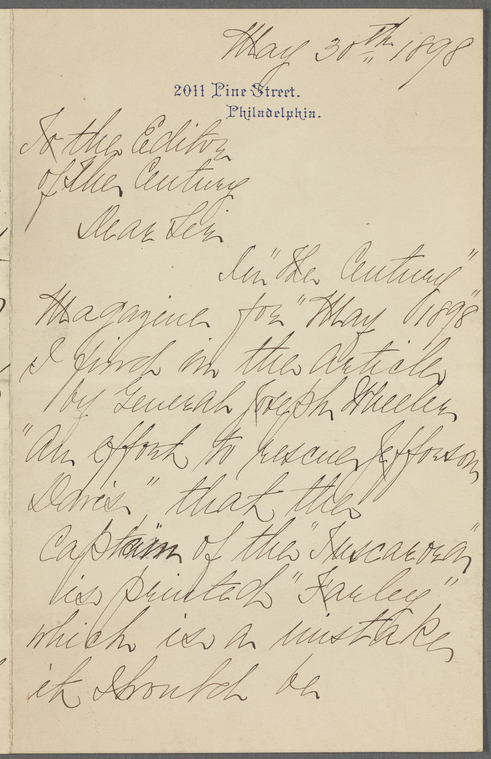 May 30th 1898
2011 Pine Street.
Philadelphia.
To the Editor
of The Century
Dear Sir
In "The Century"
Magazine for "May 1898"
I find in the article
by General Joseph Wheeler
"An effort to rescue Jefferson
Davis", that the
Captain of the "Tuscarora"
is printed "Farley"
which is a mistake
it should be